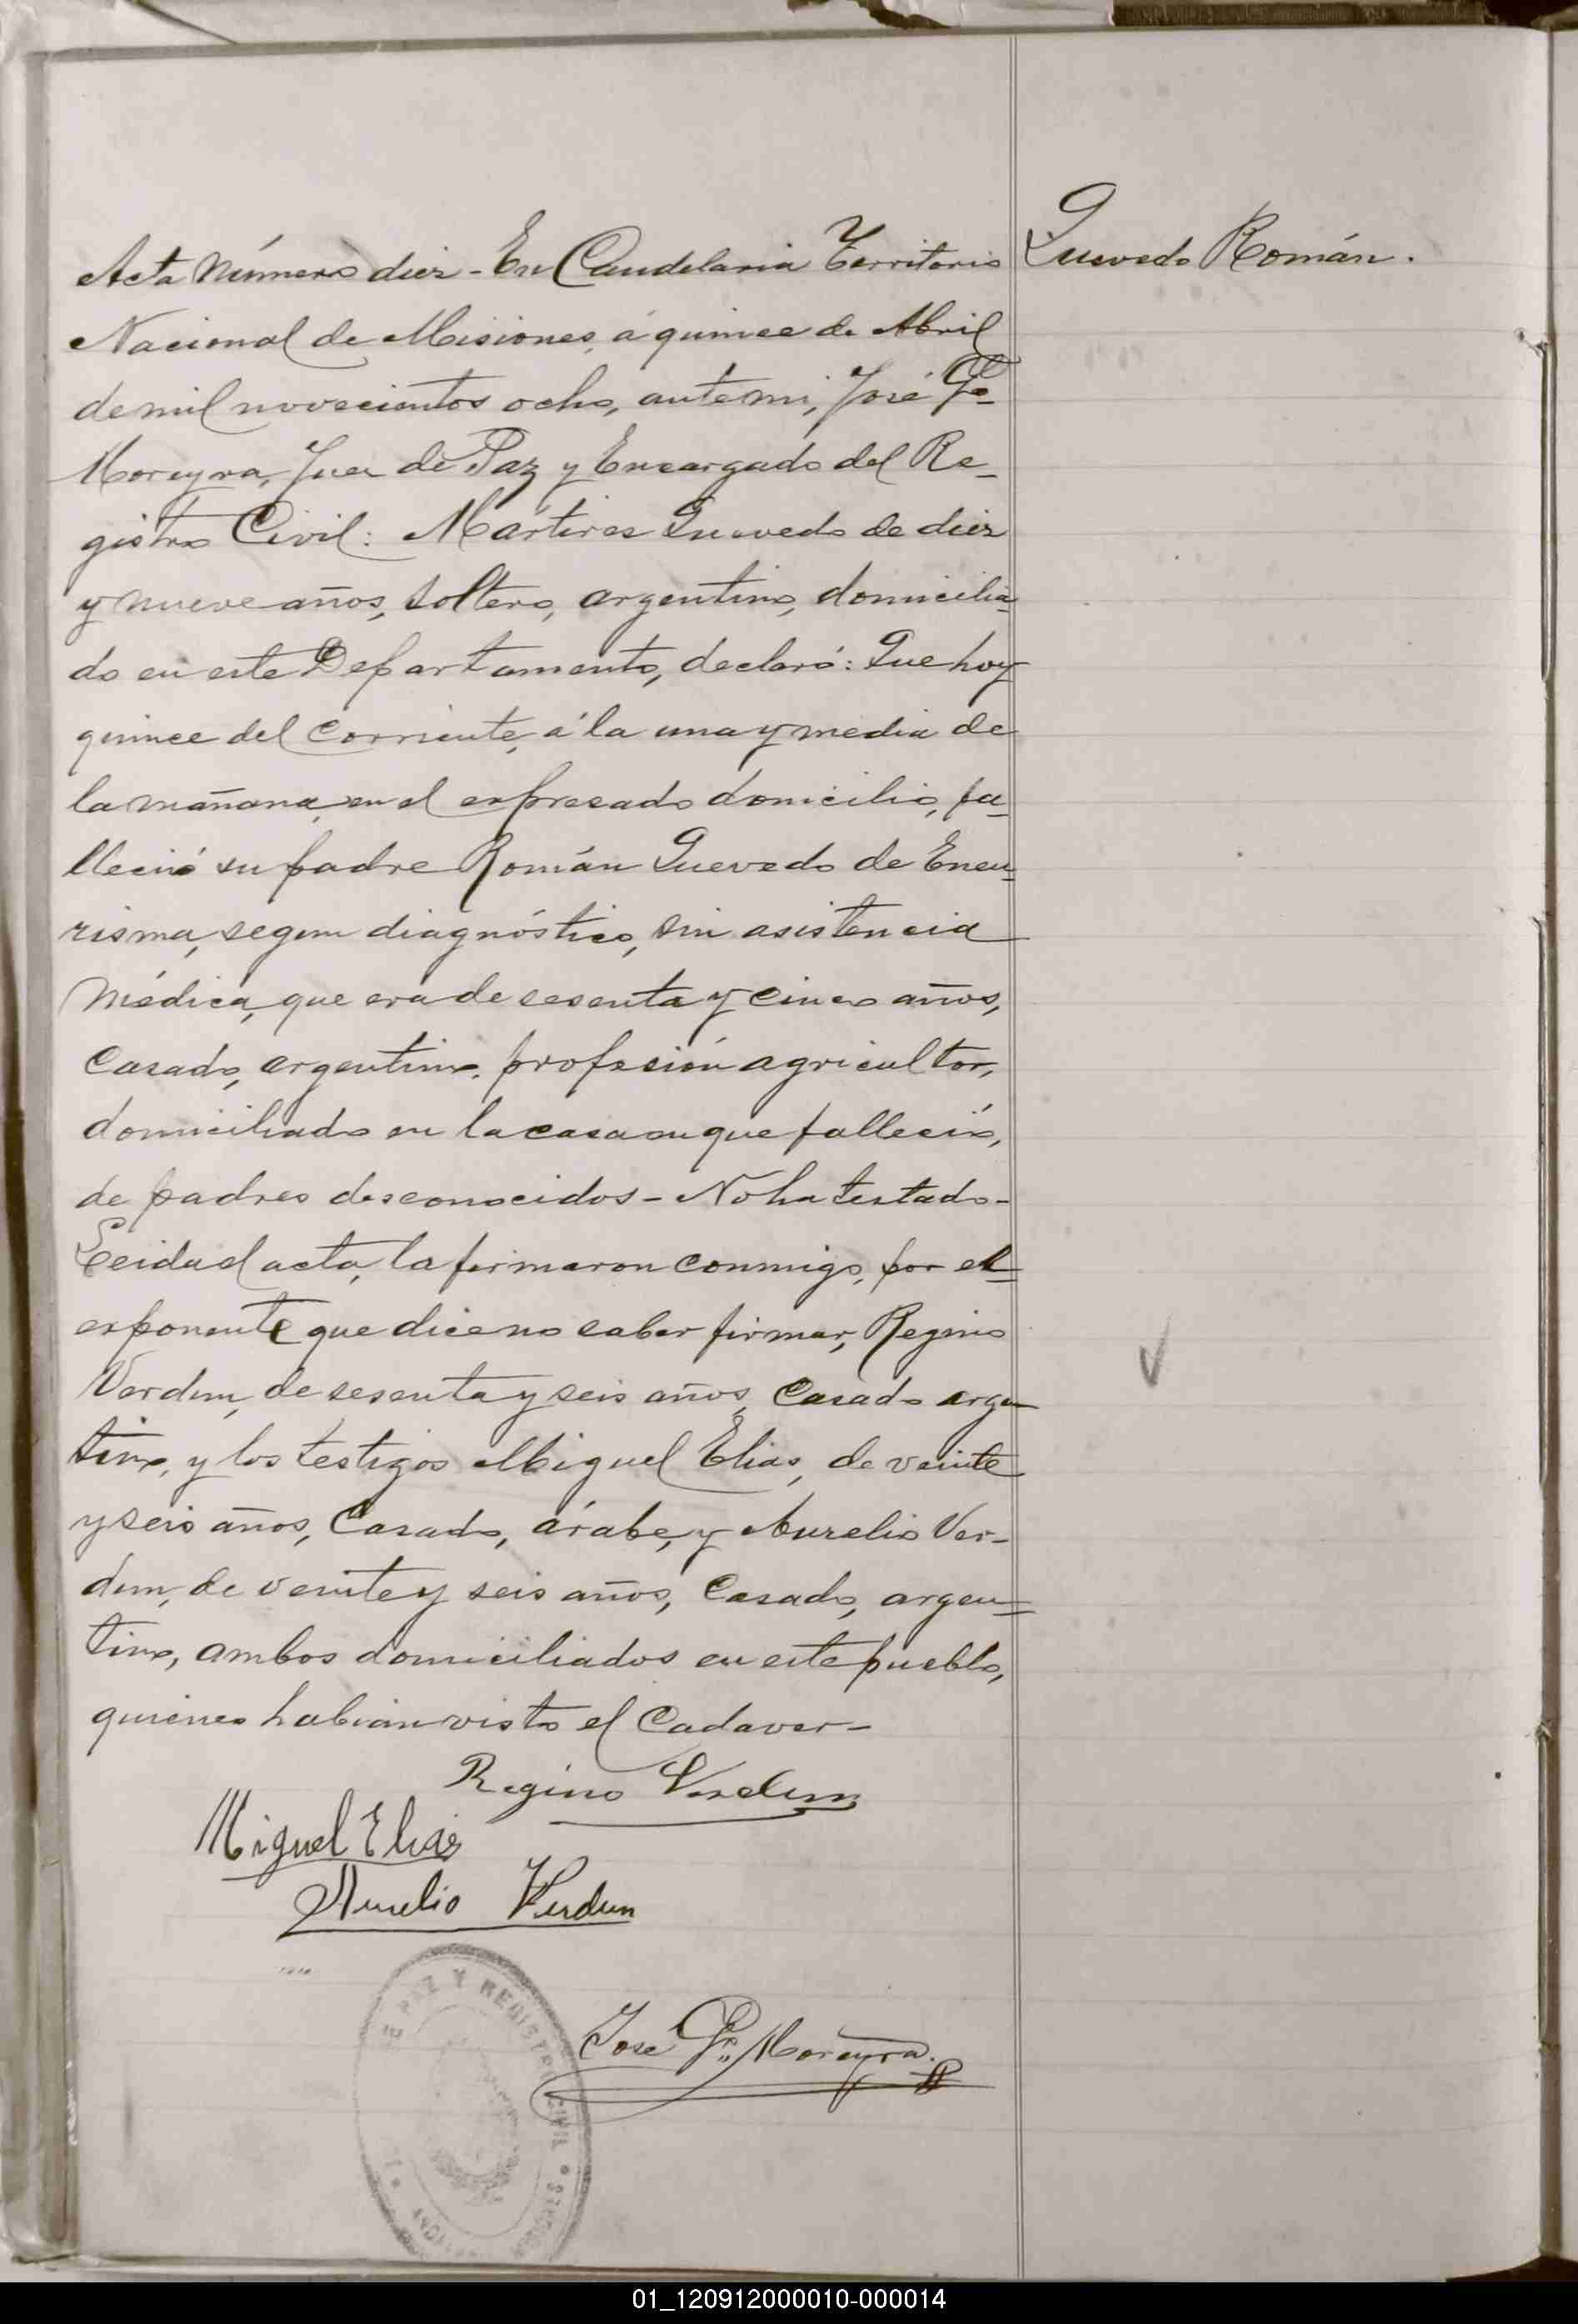 Quevedo Román.
Acta Número diez - En Candelaria Territorio
Nacional de Misiones, á quince de Abril
de mil novecientos ocho, ante mi, José Gº
Moreyra, Juez de Paz y Encargado del Re-
gistro Civil: Mártires Quevedo de diez
y nueve años, soltero, argentino, domicilia-
do en este Departamento, declaró: Que hoy
quince del corriente, á la una y media de
la mañana, en el expresado domicilio, fa-
lleció su padre Román Quevedo de Eneu-
risma, segun diagnóstico, sin asistencia
médica, que era de sesenta y cinco años,
casado, argentino, profesión agricultor,
domiciliado en la casa en que falleció,
de padres desconocidos - No ha testado -
Leida el acta, la firmaron conmigo, por el
exponente que dice no saber firmar, Regino
Verdun, de sesenta y seis años, casado argen
tino, y los testigos Miguel Elias, de veinte
y seis años, casado, árabe, y Aurelio Ver-
dun, de veinte y seis años, casado, argen=
tino, ambos domiciliados en este pueblo,
quienes habian visto el cadaver -
Regino Verdun
Miguel Elias
Aurelio Verdun
José Gº Moreyra.
E PAZ Y REGISTRO CIVIL
01_120912000010-000014